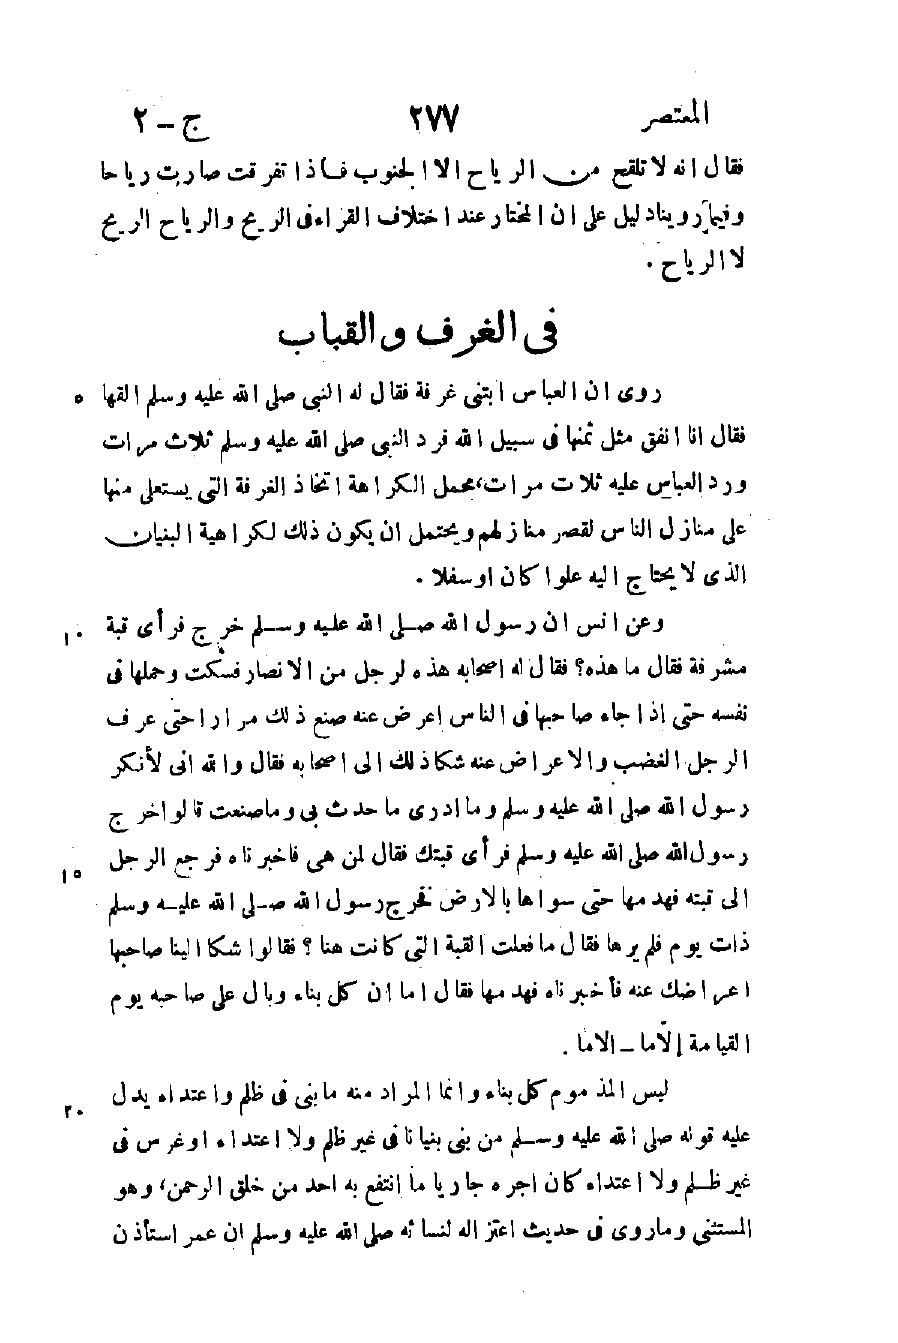 المعتصر ٢٧٧ ج - ٢
فقال انه لا تلقح من الرياح الا الجنوب فاذا تفرقت صارت رياحا
وفيما روينا دليل على ان المختار عند اختلاف القراء فى الريح والرياح الريح
لا الرياح .
فى الغرف والقباب
روى ان العباس ابتنى غرفة فقال له النبى صلى الله عليه وسلم القها ٥
فقال انا انفق مثل ثمنها فى سبيل الله فرد النبى صلى الله عليه وسلم ثلاث مرات
ورد العباس عليه ثلاث مرات، محمل الكراهة اتخاذ الغرفة التى يستعلى منها
على منازل الناس لقصر منازلهم ويحتمل ان يكون ذلك لكراهية البنيان
الذى لا يحتاج اليه علوا كان او سفلا .
وعن انس ان رسول الله صلى الله عليه وسلم خرج فرأى قبة ١٠
مشرفة فقال ما هذه؟ فقال له اصحابه هذه لرجل من الانصار فسكت وحملها فى
نفسه حتى إذا جاء صاحبها فى الناس اعرض عنه صنع ذلك مرارا حتى عرف
الرجل الغضب والاعراض عنه شكا ذلك الى اصحابه فقال والله انى لأنكر
رسول الله صلى الله عليه وسلم وما ادرى ما حدث بى وما صنعت قالوا خرج
رسول الله صلى الله عليه وسلم فرأى قبتك فقال لمن هى فاخبرناه فرجع الرجل ١٥
الى قبته فهدمها حتى سواها بالارض فخرج رسول الله صلى الله عليه وسلم
ذات يوم فلم يرها فقال ما فعلت القبة التى كانت هنا ؟ فقالوا شكا الينا صاحبها
اعراضك عنه فأخبرناه فهدمها فقال اما ان كل بناء وبال على صاحبه يوم
القيامة إلّاما - الاما .
ليس المذموم كل بناء وانما المراد منه ما بنى فى ظلم واعتداء يدل ٢٠
عليه قوله صلى الله عليه وسلم من بنى بنيانا فى غير ظلم ولا اعتداء او غرس فى
غير ظلم ولا اعتداء كان اجره جاريا ما انتفع به احد من خلق الرحمن، وهو
المستثنى وما روى فى حديث اعتزاله لنسائه صلى الله عليه وسلم ان عمر استأذن